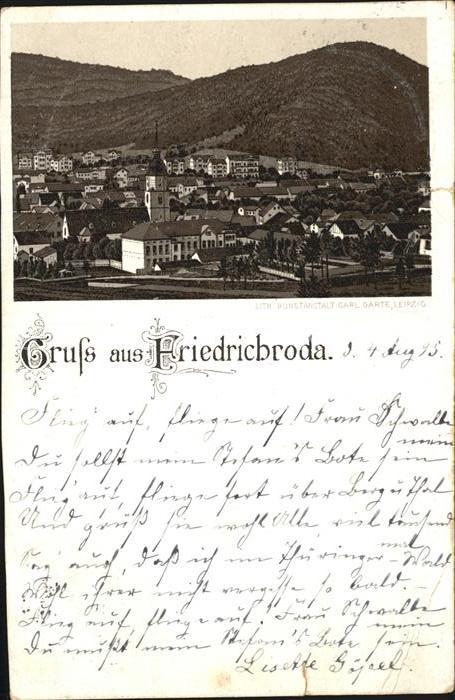 LITH. KUNSTANSTALT CARL GARTE, LEIPZIG.
Gruſs aus Friedrichroda. d. 4 Aug 95.
Flieg' auf, fliege auf! Frau Schwalbe mein
Du sollst mein Stefan's Bote sein
Flieg' auf, fliege fort über Berg u Thal
Und grüß sie wohl Alle, viel tausend mal
Sag' auch, daß ich im Thüringer-Wald
Will ihrer nicht vergessen so bald. –
Flieg auf, fliege auf. Frau Schwalbe mein
Du mußt mein Stefan's Bote sein.
Lisette